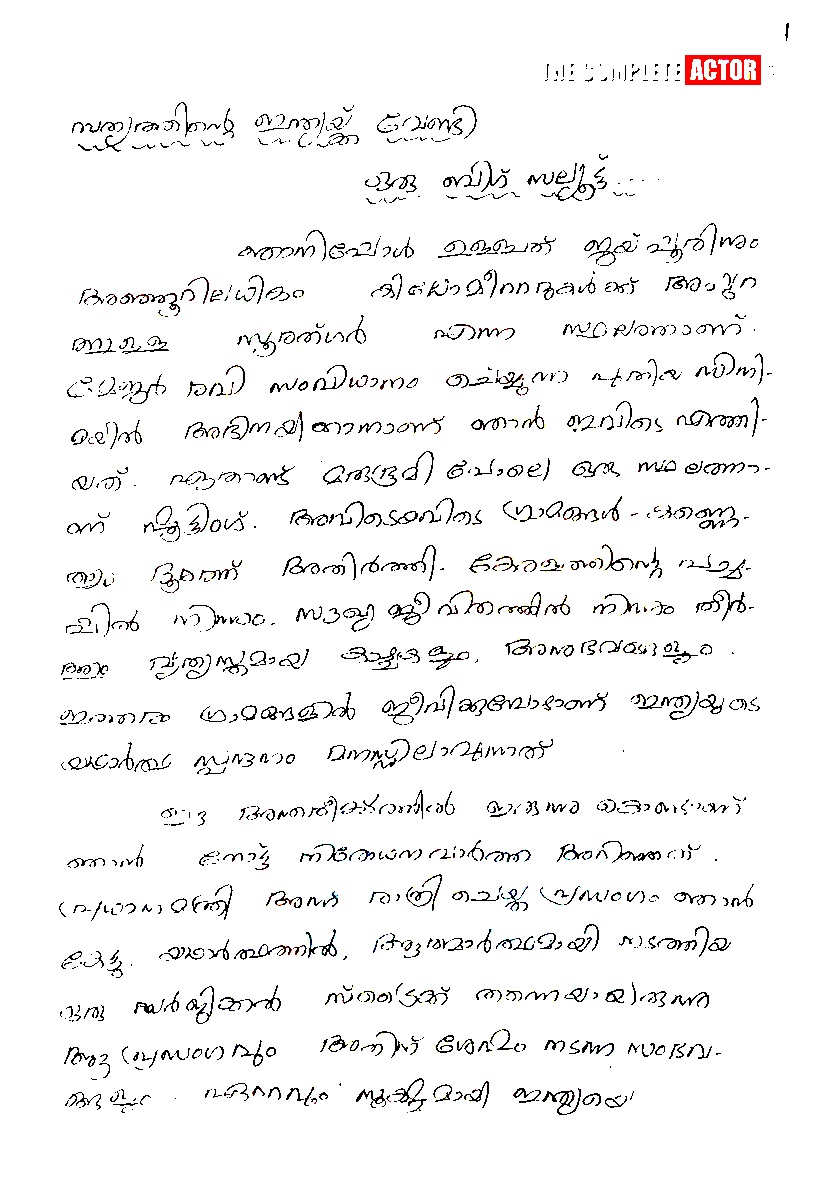 1
THE COMPLETE ACTOR
സത്യത്തിന്റെ ഇന്ത്യയ്ക്ക് വേണ്ടി
ഒരു ബിഗ് സല്യൂട്ട്....
ഞാനിപ്പോൾ ഉള്ളത് ജയ്പൂരിനും
അഞ്ഞൂറിലധികം കിലോമീറ്ററുകൾക്ക് അപ്പുറ
ത്തുള്ള സൂരത്ഗർ എന്ന സ്ഥലത്താണ്.
മേജർ രവി സംവിധാനം ചെയ്യുന്ന പുതിയ സിനി-
മയിൽ അഭിനയിക്കാനാണ് ഞാൻ ഇവിടെ എത്തി-
യത്. ഏതാണ്ട് മരുഭൂമി പോലെ ഒരു സ്ഥലത്താ-
ണ് ഷൂട്ടിംഗ്. അവിടെയവിടെ ഗ്രാമങ്ങൾ-
ദൂരത്ത് അതിർത്തി. കേരളത്തിന്റെ പച്ച-
പ്പിൽ നിന്നും, സൗഖ്യ ജീവിതത്തിൽ നിന്നും തീർ-
ത്തും വ്യത്യസ്തമായ കാഴ്ചകളും, അനുഭവങ്ങളും.
ഇത്തരം ഗ്രാമങ്ങളിൽ ജീവിക്കുമ്പോഴാണ് ഇന്ത്യയുടെ
യഥാർത്ഥ സ്പന്ദനം മനസ്സിലാവുന്നത്
ഈ അന്തരീക്ഷത്തിൽ ഇരുന്നു കൊണ്ടാണ്
ഞാൻ നോട്ട് നിരോധന വാർത്ത അറിഞ്ഞത്.
പ്രധാനമന്ത്രി അന്ന് രാത്രി ചെയ്ത പ്രസംഗം ഞാൻ
കേട്ടു. യഥാർത്ഥത്തിൽ, ആത്മാർത്ഥമായി നടത്തിയ
ഒരു സർജിക്കൽ സ്ട്രൈക്ക് തന്നെയായിരുന്നു
ആ പ്രസംഗവും അതിന് ശേഷം നടന്ന സംഭവ-
ങ്ങളും. ഏറ്റവും സൂക്ഷ്മമായി ഇന്ത്യയെ